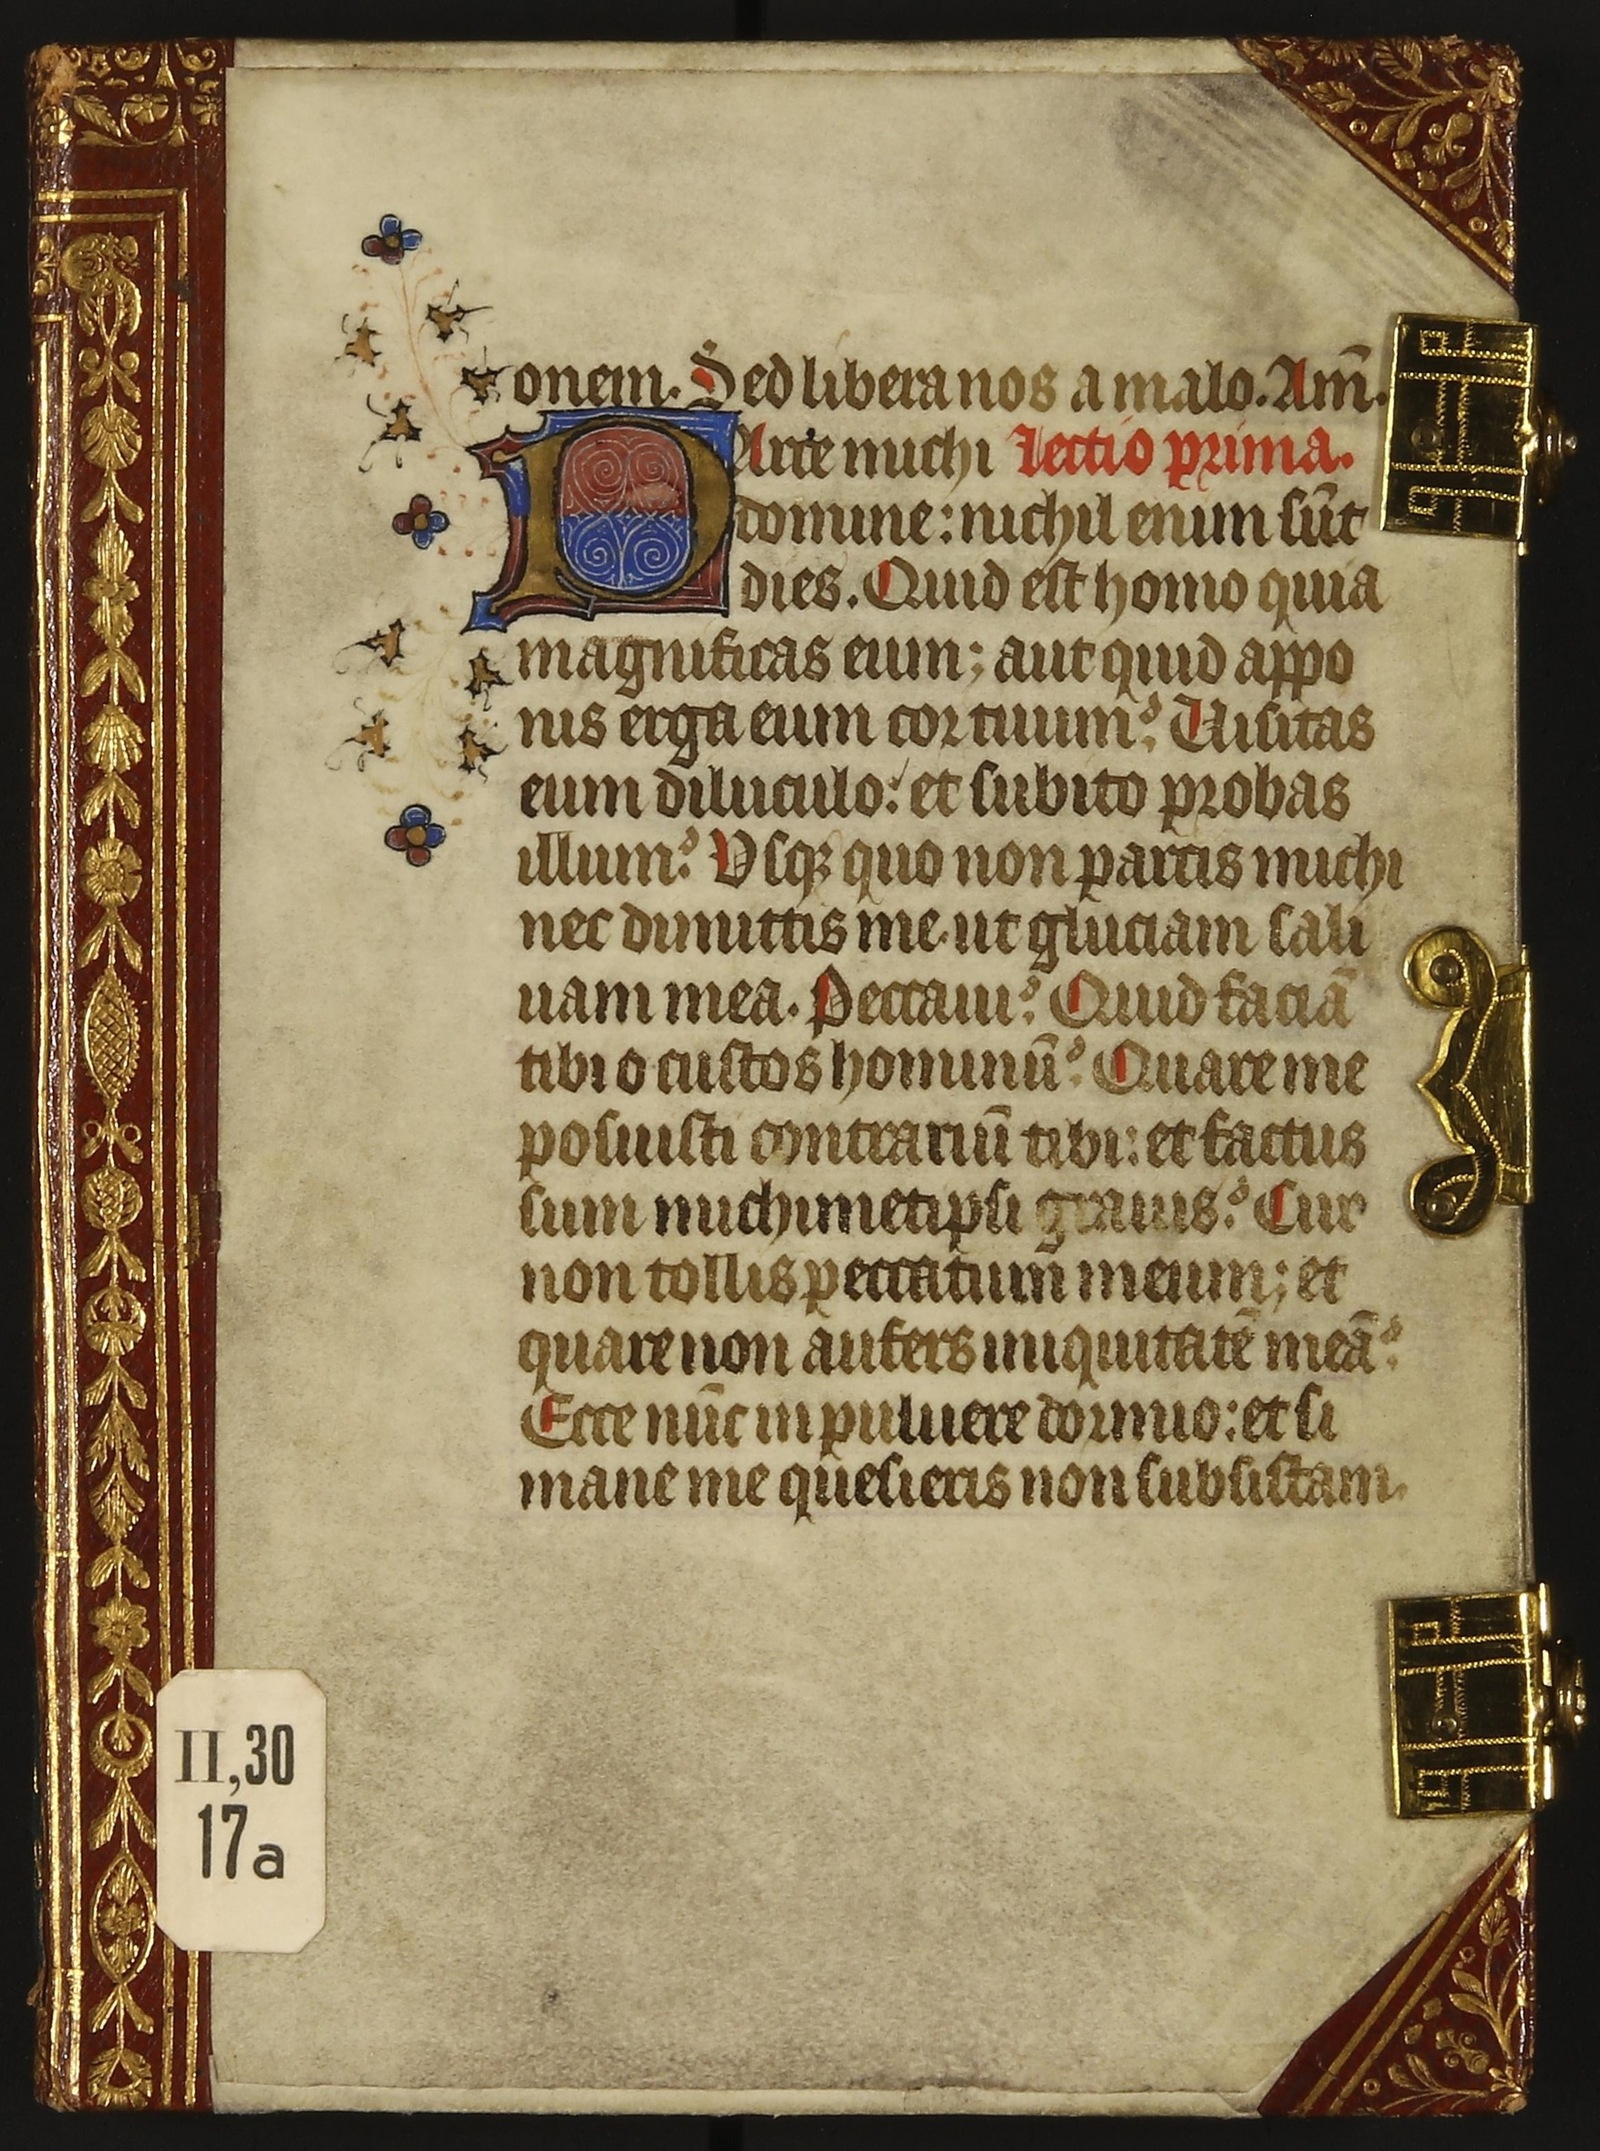 onem. Sed libera nos a malo. Am̄.
PArce michi Lectio prima.
domine: nichil enim sūt
dies. Quid est homo quia
magnificas eum; aut quid appo
nis erga eum cor tuum? Visitas
eum diluculo: et subito probas
illum? Vsqꝫ quo non parcis michi
nec dimittis me. ut gluciam sali
uam mea. Peccaui? Quid faciā
tibi o custos hominū? Quare me
posuisti contrariū tibi: et factus
sum michimetipsi grauis? Cur
non tollis peccatum meum; et
quare non aufers iniquitatē meā?
Ecce nūc in puluere dormio: et si
mane me quesieris non subsistam.
II,30
17a